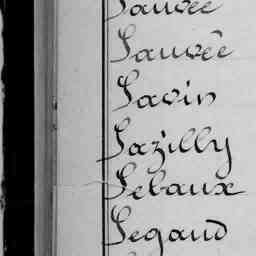 Sauvée
Sauvée
Savin
Sazilly
Sebaux
Segaud